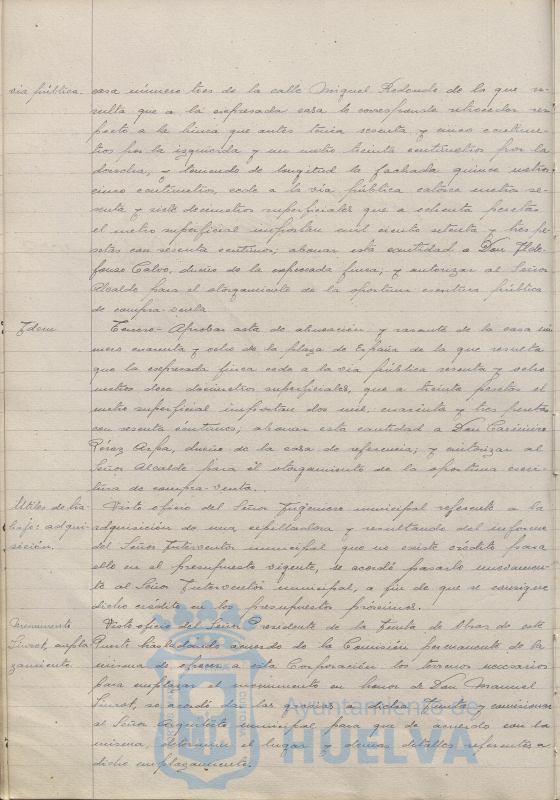 vía pública. casa número tres de la calle Miguel Redondo de la que re-
sulta que a la expresada casa le corresponde retroceder res-
pecto a la línea que antes tenía sesenta y cinco centíme-
tros por la izquierda y un metro treinta centímetros por la
derecha, y teniendo de longitud la fachada quince metros
cinco centímetros, cede a la vía pública catorce metros se-
senta y siete decímetros superficiales que a ochenta pesetas
el metro superficial importan mil ciento setenta y tres pe-
setas con sesenta céntimos; abonar esta cantidad a Don Ilde-
fonso Calvo, dueño de la expresada finca; y autorizar al Señor
Alcalde para el otorgamiento de la oportuna escritura pública
de compra-venta.
Idem Tercero- Aprobar acta de alineación y rasante de la casa nú-
mero cuarenta y ocho de la plaza de España de la que resulta
que la expresada finca cede a la vía pública sesenta y ocho
metros doce decímetros superficiales, que a treinta pesetas el
metro superficial importan dos mil cuarenta y tres pesetas
con sesenta céntimos; abonar esta cantidad a Don Casimiro
Pérez Arpa, dueño de la casa de referencia; y autorizar al
Señor Alcalde para el otorgamiento de la oportuna escri-
tura de compra-venta.
Útiles de tra- Visto oficio del Señor Ingeniero municipal referente a la
bajo: adqui- adquisición de una cepilladora y resultando del informe
sición. del Señor Interventor municipal que no existe crédito para
ello en el presupuesto vigente, se acordó pasarlo nuevamen-
te al Señor Interventor municipal, a fin de que se consigne
dicho crédito en los presupuestos próximos.
Monumento Visto oficio del Señor Presidente de la Junta de Obras de este
Siurot, empla- Puerto trasladando acuerdo de la Comisión permanente de la
zamiento misma de ofrecer a esta Corporación los terrenos necesarios
para emplazar el monumento en honor de Don Manuel
Siurot, se acordó dar las gracias a dicha Junta y comisionar
al Señor Arquitecto municipal para que de acuerdo con la
misma, determine el lugar y demás detalles referentes a
dicho emplazamiento.
Ayuntamiento de
HUELVA